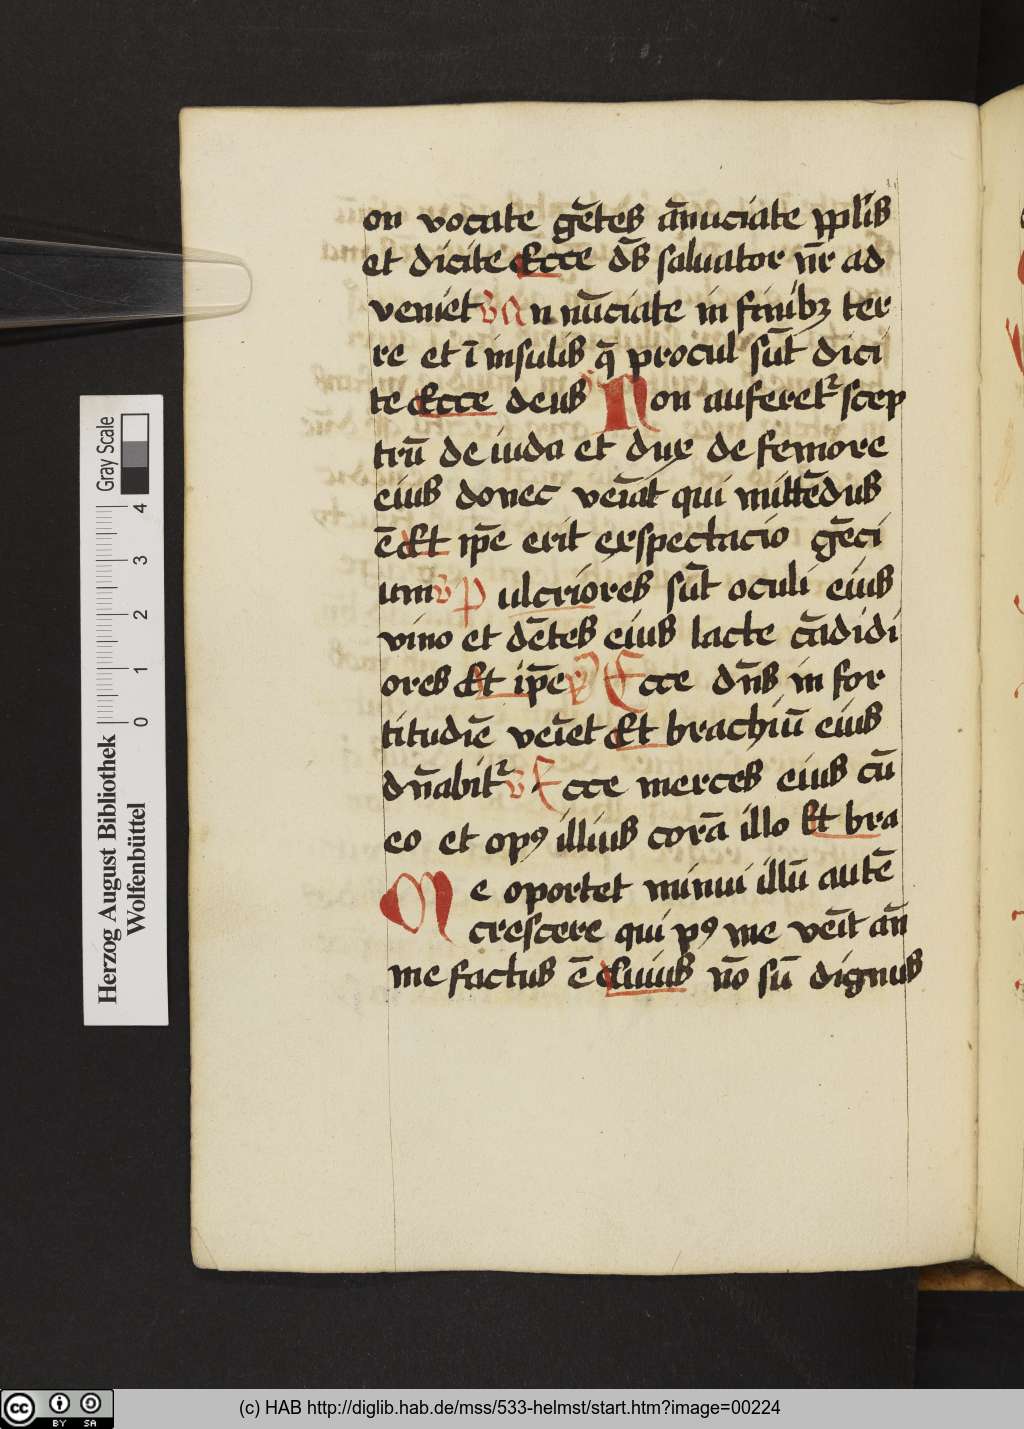 on vocate gētes ānuciate ppl'is
et dicite Ecce dūs saluator nr̄ ad
veniet v An nūciate in finibꝫ ter
re et ī insulis q̄ procul sūt dici
te Ecce deus R Non auferetᷣ scep
trū de iuda et dux de femore
eius donec veīat qui mittēdus
ē Et ip̄e erit exspectacio gēci
um v Pulcriores sūt oculi eius
vino et dētes eius lacte cādidi
ores Et ip̄e R Ecce dn̄s in for
titudīe veīet Et brachiū eius
dn̄abitᷣ v Ecce merces eius cū
eo et opꝯ illius corā illo Et bra
Me oportet minui illū autē
crescere qui pꝯ me veīt an̄
me factus ē Cuius nō sū dignus
Gray Scale
4
3
2
1
0
Herzog August Bibliothek
Wolfenbüttel
cc BY SA
(c) HAB http://diglib.hab.de/mss/533-helmst/start.htm?image=00224